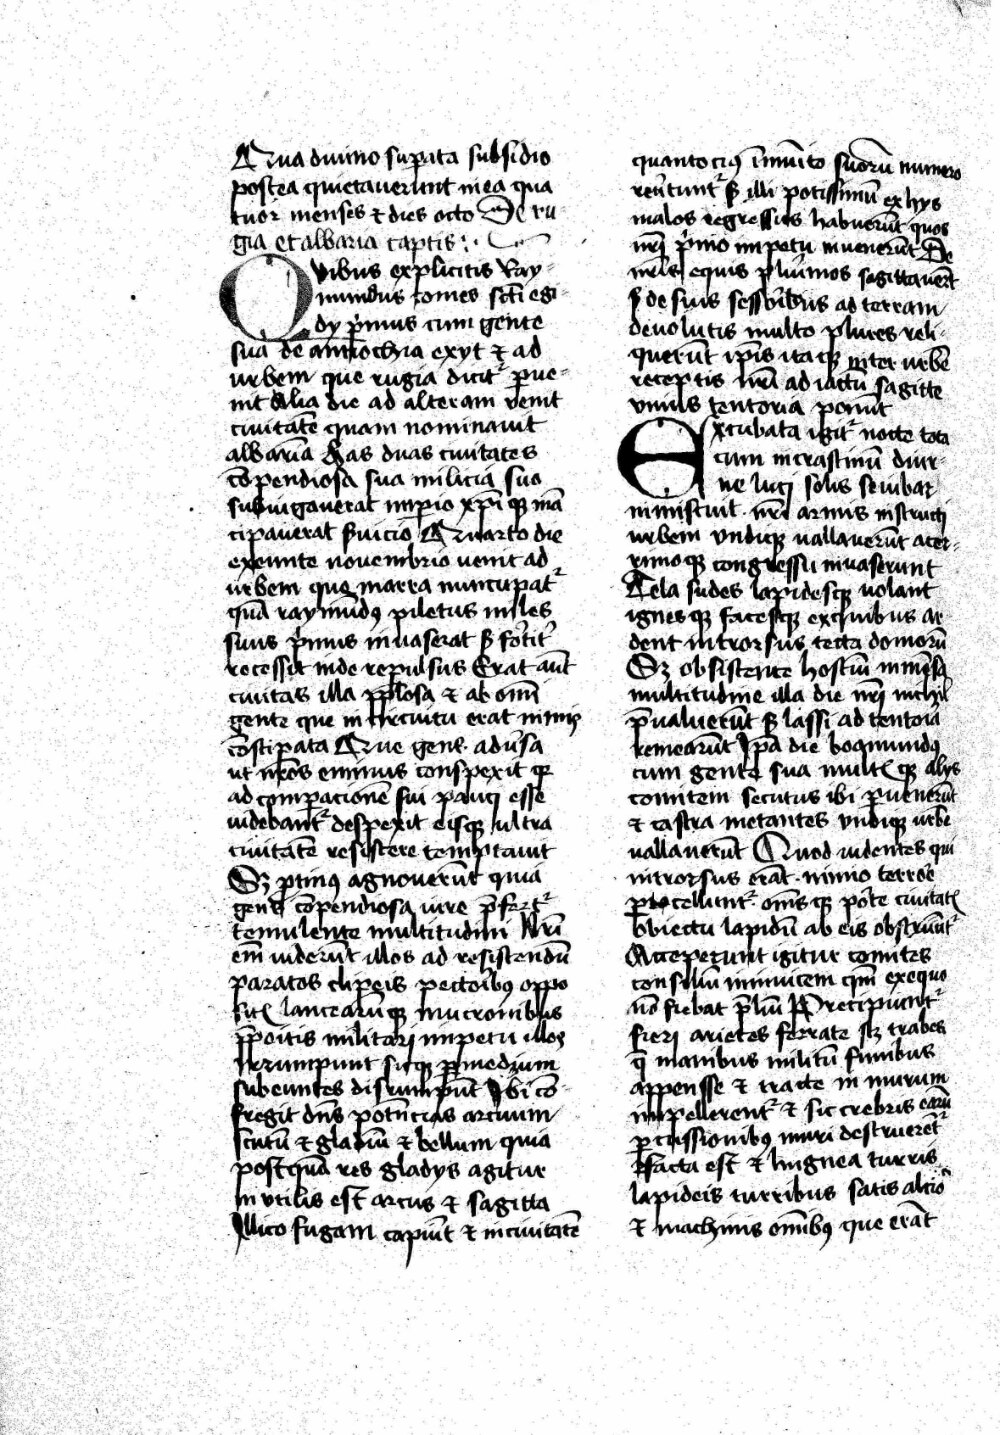 Qua diuino sup̄ata subsidio
postea quietauerunt mea qua
tuor menses ⁊ dies octo De ru-
gia et albaria captis:·
Quibus explicitis Ray-
mundus comes sc̄ti egi-
dy p̄mus cum gente
sua de antiochia exyt ⁊ ad
urbem que rugia dicit᷑ ꝑue-
nit Alia die ad alteram venit
ciuitatē quam nominauit
albariā Has duas ciuitates
cōpendiosa sua milicia suo
subiugauerat imperio xp̄i qꝫ mā
cipauerat ẜuicio Quarto die
exeunte nouembrio venit ad
urbem que marra nuncupat᷑
quā raymūdꝰ piletus miles
suus p̄mus inuaserat ẜ fortit᷑
recessit inde repulsus Erat aūt
ciuitas illa pplosa ⁊ ab om̄i
gente que in circuitu erat nimis
cōstipata Que gens adūsa
ut nr̄os eminus conspexit qꝫ
ad comꝑacionē sui pauci esse
videbant᷑ despexit eisqꝫ ultra
ciuitatē resistere temptauit
Sꝫ ꝓtinꝰ agnouerūt quia
gens cōpendiosa iure p̄fert᷑
temulente multitudini Nr̄i
em̄ viderūt illos ad resistendū
paratos clipeis pectoribus oppo
sitꝭ lancearūqꝫ mucronibus
p̄positis militari impetu illos
Irrumpunt sicqꝫ ꝑ medium
subeuntes disrumpūt Ibi cō-
fregit dn̄s potēncias arcuum
scutū ⁊ gladiū ⁊ bellum quia
postquā res gladys agitur
Inutilis est arcus ⁊ sagitta
Illico fugam capiūt ⁊ in ciuitatē
quantociꝰ īmūito suorū numero
reūtunt᷑ ẜ illi potissimū ex hys
malos regressus habuerūt quos
nr̄i p̄mo impetu inuenerūt De
nr̄is equis plurimos sagittauerūt
ẜ de suis sessoribus ad terram
deuolutis multo plures reli-
querūt ip̄is itaqꝫ inter urbē
receptis nr̄i ad iactū sagitte
unius tentoria ponūt
Excubata igit᷑ nocte tota
cum in crastinū diur-
ne luci solis se iubar
inmiscuit nr̄i armis instructi
urbem undiqꝫ uallauerūt acer-
rimoqꝫ congressu inuaserunt
Tela sudes lapidesqꝫ uolant
ignesqꝫ facesqꝫ ex quibus ar
dent introrsus tecta domorū
Sꝫ obsistente hostiū inmēsa
multitudine illa die nr̄i nichil
p̄ualuerūt ẜ lassi ad tentoria
remearūt Ip̄a die boamundꝰ
cum gente sua multꝭqꝫ alys
comitem secutus ibi ꝑuenerūt
⁊ castra metantes undiqꝫ urbē
uallauerūt Quod videntes qui
introrsus erāt nimio terrore
ꝑcelluntur᷑ om̄isqꝫ porte ciuitatꝭ
obiectu lapidū ab eis obstruūt᷑
Acceperunt igitur comites
consiliū inuicem q̄m ex equo
nō fiebat p̄liū Precipiunt᷑
fieri arietes ferrate scꝫ trabes
q̄ manibus militū funibus
appense ⁊ tracte in murum
impellerent᷑ ⁊ sic crebris earū
ꝑcussionibꝰ muri destrueret᷑
facta est ⁊ lingnea turris
lapideis turribus satis altior
⁊ machinis om̄ibꝰ que erāt